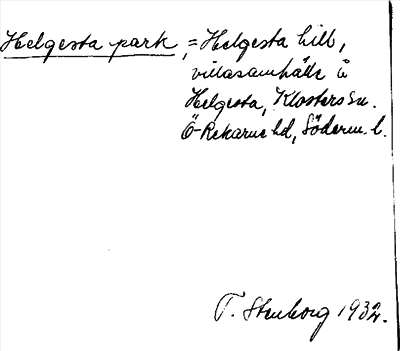 Helgesta park, = Helgesta hill,
villasamhälle å
Helgesta, Klosters sn.
Ö-Rekarne hd, Söderm. l.
T. Stenborg 1932.